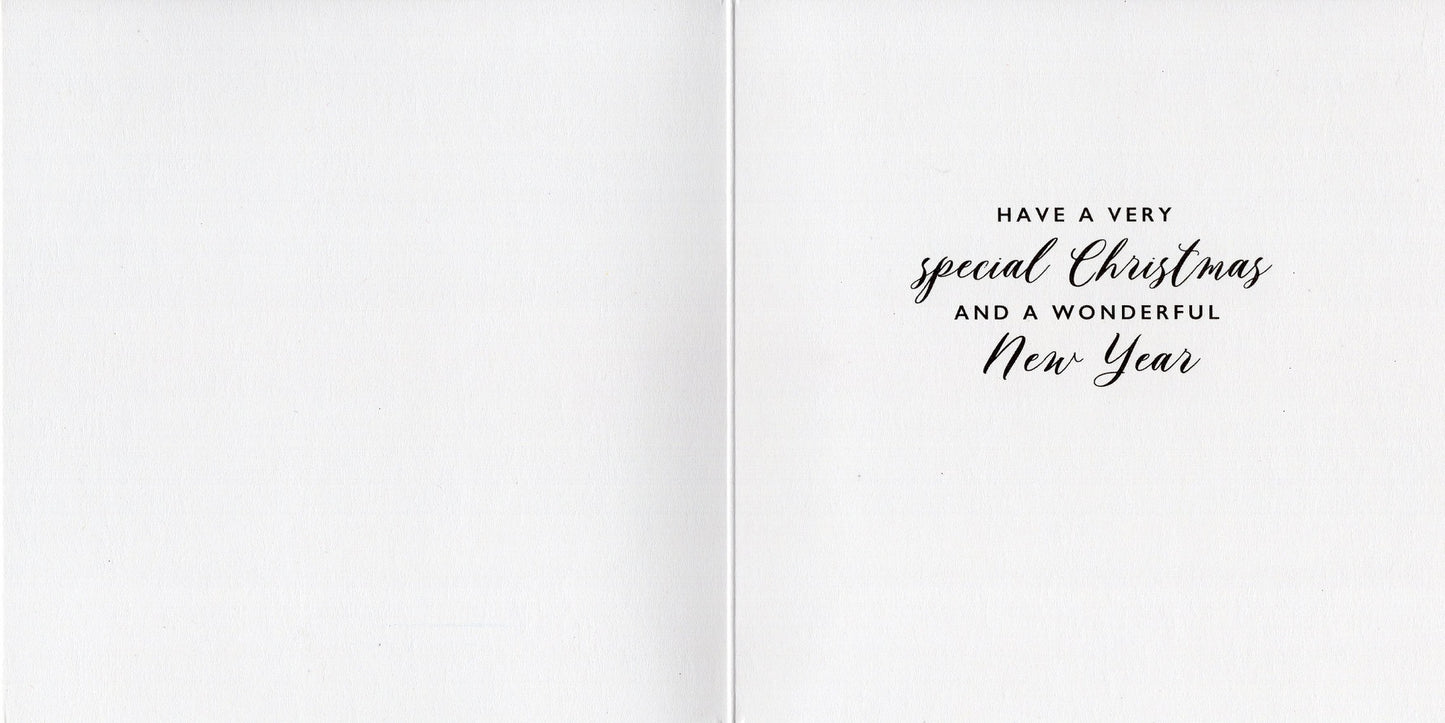 HAVE A VERY
special Christmas
AND A WONDERFUL
New Year